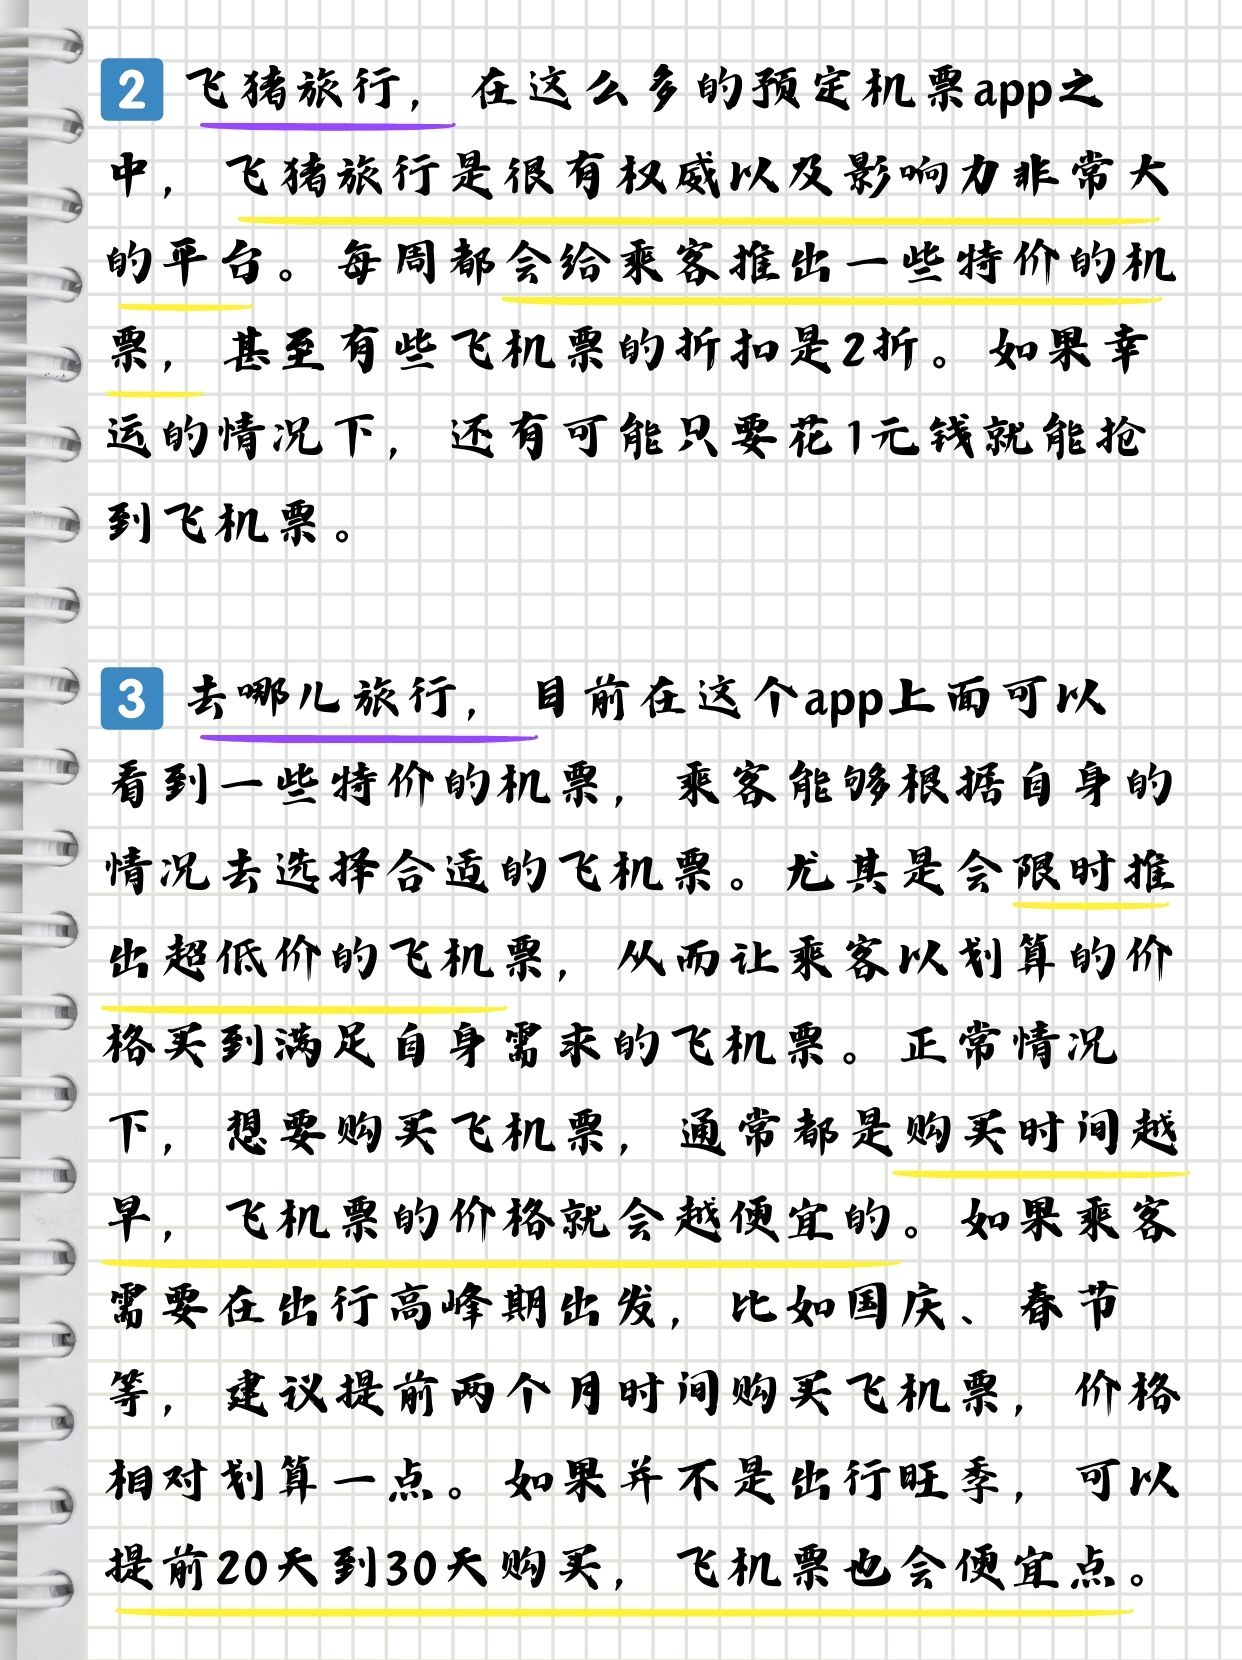 2 飞猪旅行，在这么多的预定机票app之
中，飞猪旅行是很有权威以及影响力非常大
的平台。每周都会给乘客推出一些特价的机
票，甚至有些飞机票的折扣是2折。如果幸
运的情况下，还有可能只要花1元钱就能抢
到飞机票。
3 去哪儿旅行，目前在这个app上面可以
看到一些特价的机票，乘客能够根据自身的
情况去选择合适的飞机票。尤其是会限时推
出超低价的飞机票，从而让乘客以划算的价
格买到满足自身需求的飞机票。正常情况
下，想要购买飞机票，通常都是购买时间越
早，飞机票的价格就会越便宜的。如果乘客
需要在出行高峰期出发，比如国庆、春节
等，建议提前两个月时间购买飞机票，价格
相对划算一点。如果并不是出行旺季，可以
提前20天到30天购买，飞机票也会便宜点。